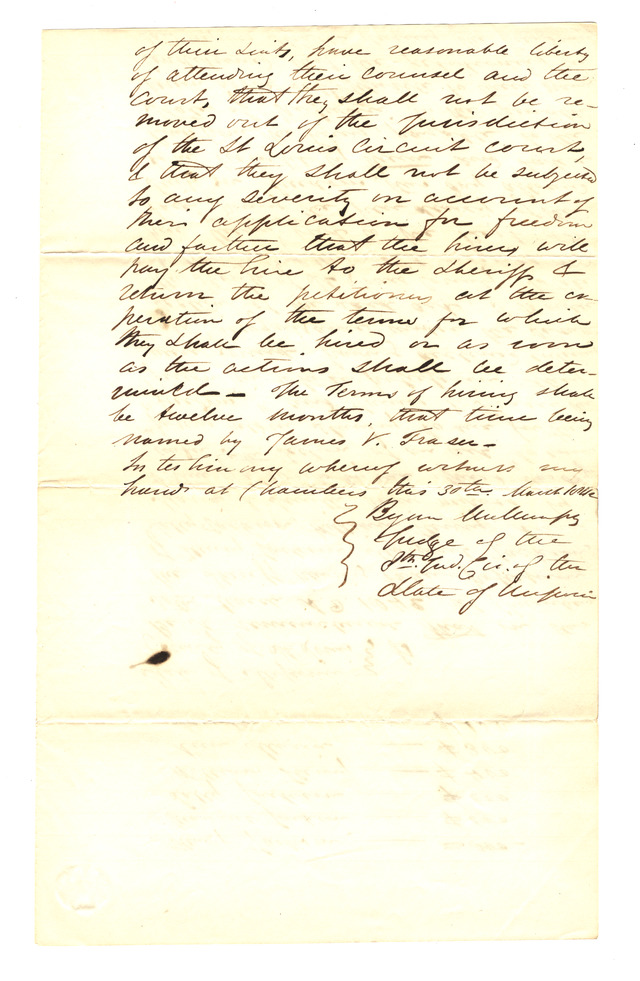 of their suits, have reasonable liberty
of attending their counsel and the
Court, that they shall not be re-
moved out of the jurisdiction
of the St Louis Circuit court,
& that they shall not be subjected
to any severity on account of
their application for freedom
and further that the hirer will
pay the hire to the Sheriff &
return the petitioners at the ex-
piration of the terms for which
they shall be hired or as soon
as the actions shall be deter-
mined — The Terms of hiring shall
be twelve months, that time being
named by James V. Fraser —
In testimony whereof witness my
hand at Chambers this 30th March
Bryan Mullanphy
Judge of the
8th Jud. Cir. of the
State of Missouri